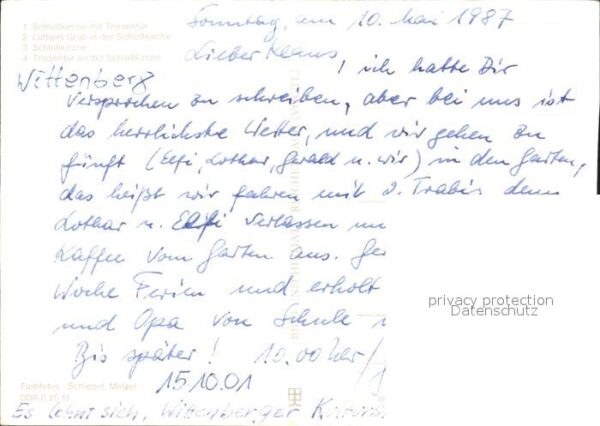 Sonntag, am 10. Mai 1987
1. Schloßkirche mit Thesentür
2. Luthers Grab in der Schloßkirche
3. Schloßkirche
4. Thesentür an der Schloßkirche
Lieber Klaus,
Wittenberg
ich hatte Dir
versprochen zu schreiben, aber bei uns ist
das herrlichste Wetter, und wir gehen zu
fünft (Elfi, Lothar, Gerald u. wir) in den Garten,
das heißt wir fahren mit d. Trabis denn
Lothar u. Elfi verlassen un
Kaffee vom Garten aus. Ger
Woche Ferien und erholt
und Opa von Schule
Bis später! 10.00 Uhr
privacy protection
Datenschutz
15 10.01
Farbfotos: Schlegel, Melzer
DDR 0,20 M
Es lohnt sich, Wittenberger